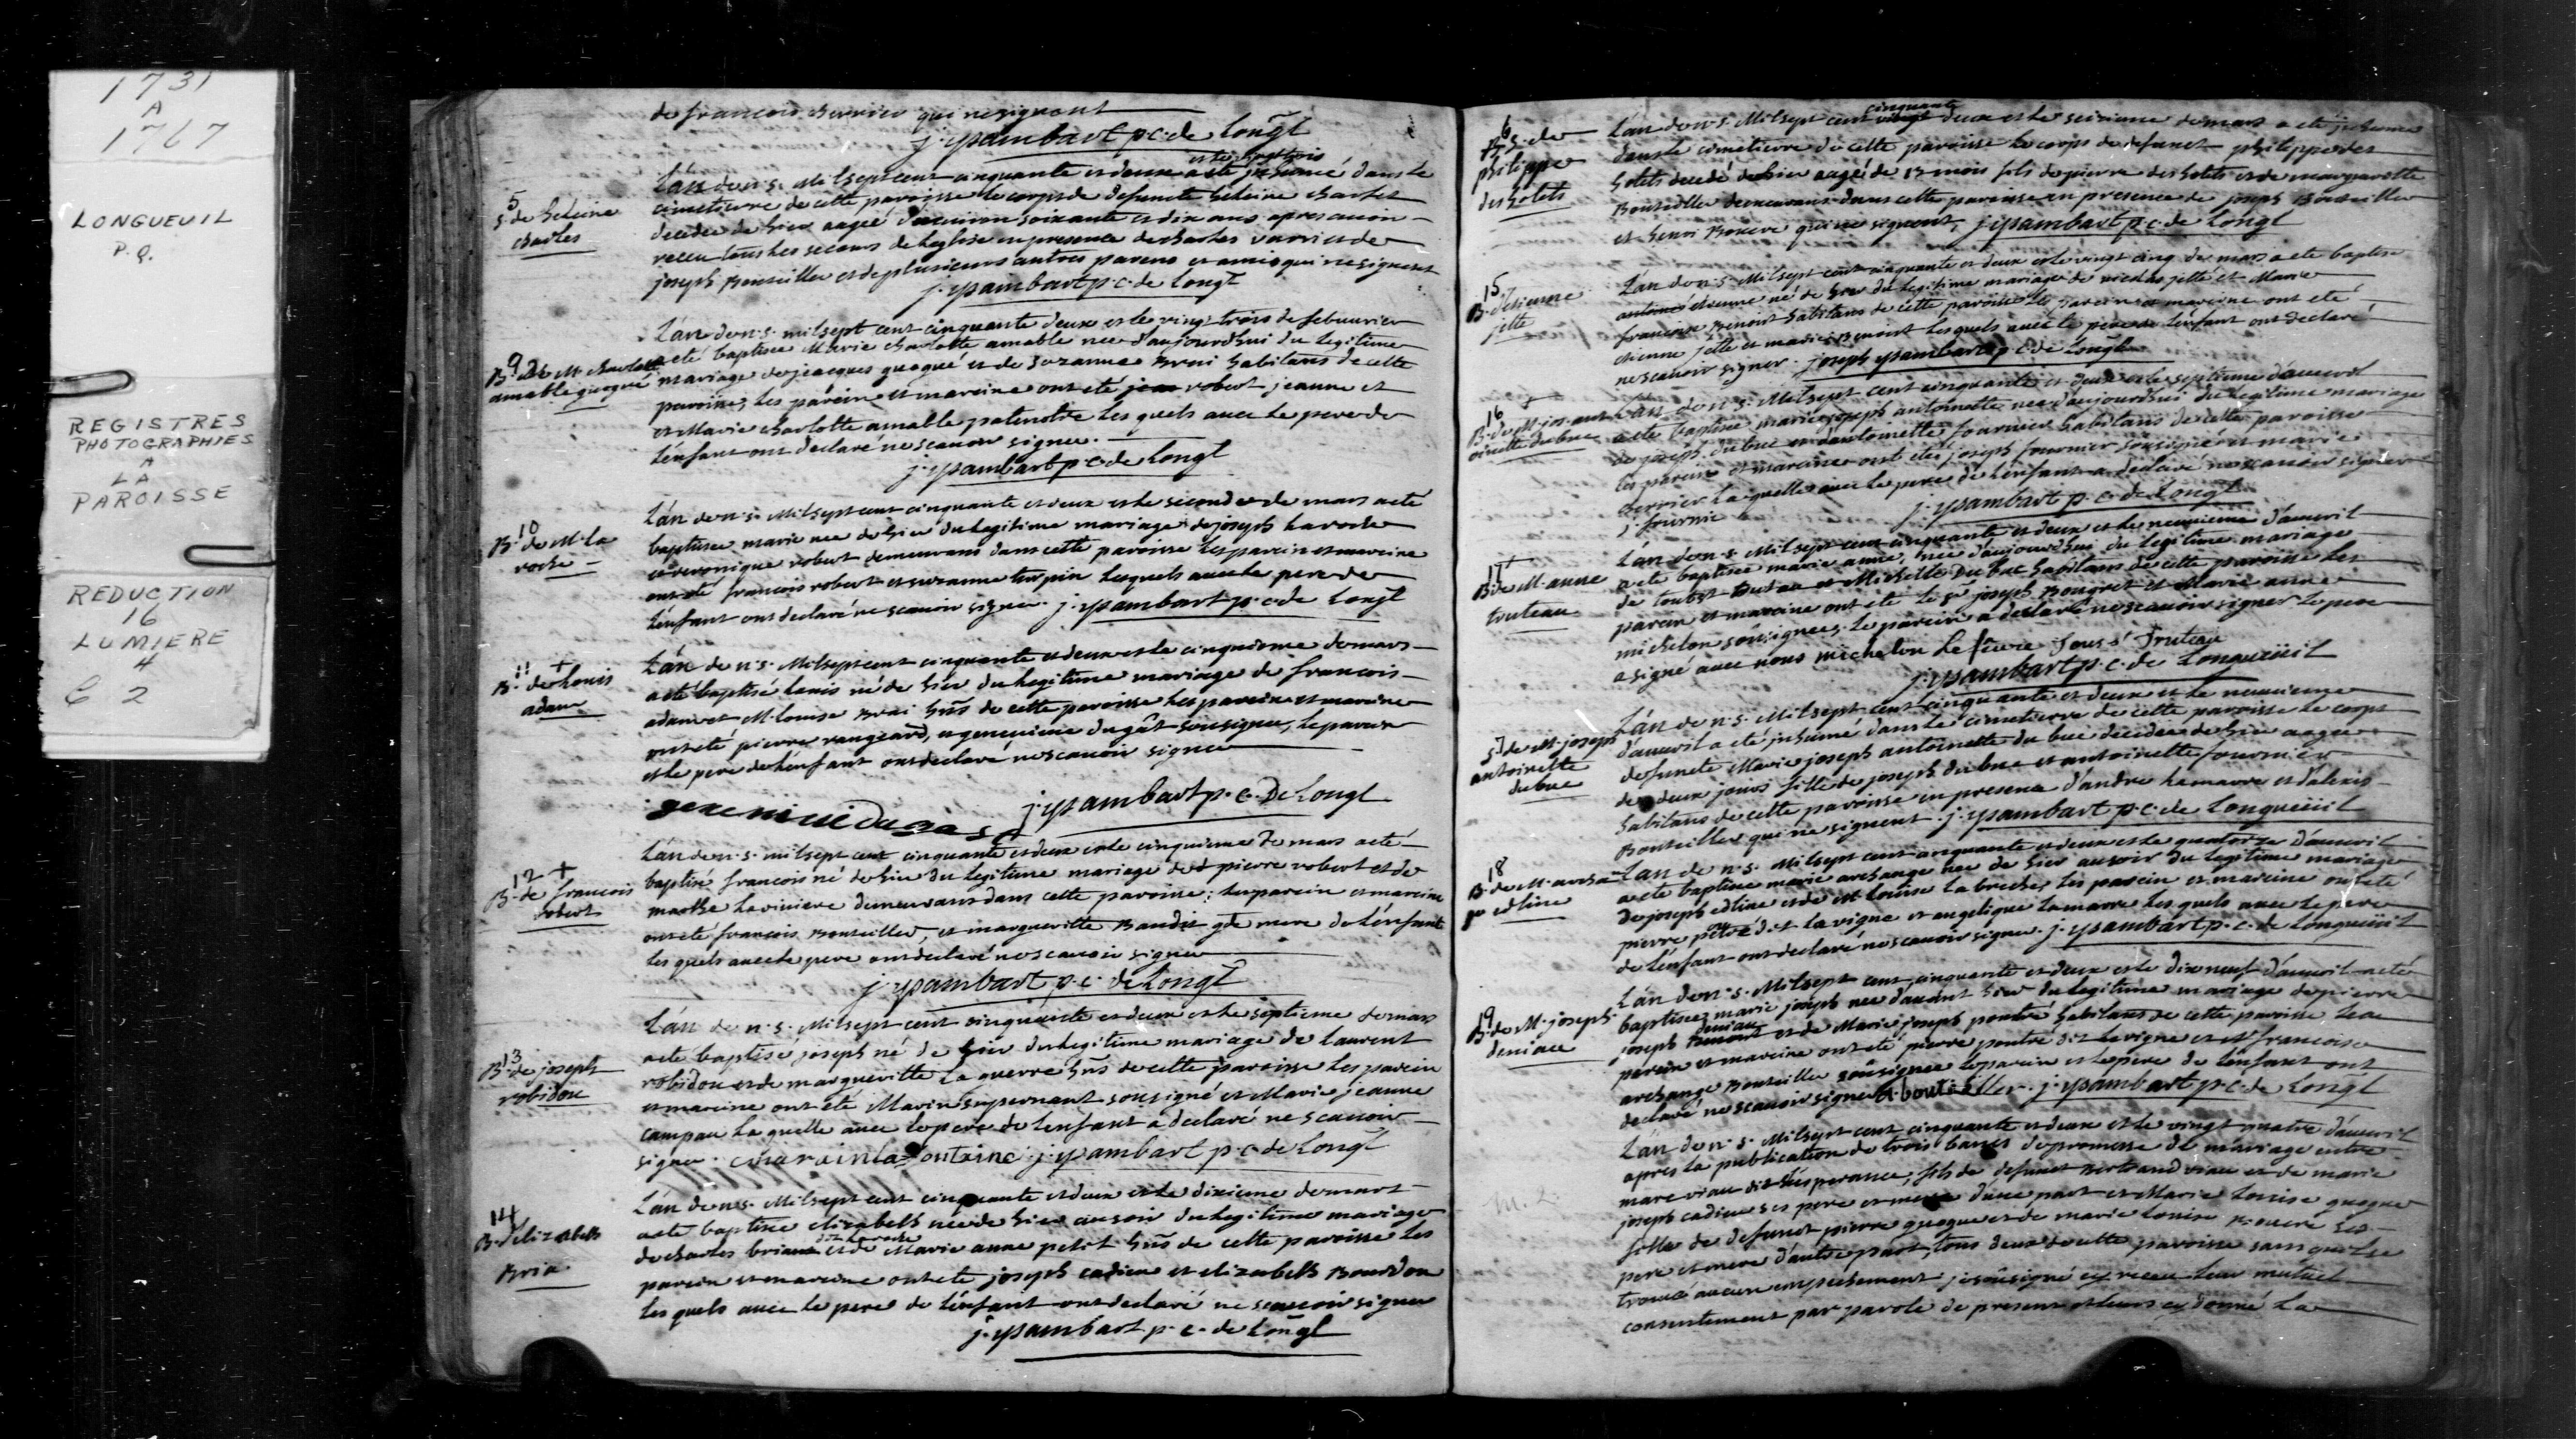 1731
A
1767
LONGUEUIL
P.Q.
REGISTRES
PHOTOGRAPHIES
A
LA
PAROISSE
REDUCTION
16
LUMIERE
4
2
de francois qui ne signont
j. ysambart p. c. de Longl
5
S. de heleine
charles
L'an de n. s. Mil sept cent cinquante et deux a été inhumé dans le
cimetierre de cette paroisse le corps de defuncte heleine charles
decedée de hier aagée d'environ soixante et dix ans apres auoir
receu tous les secours de l'eglise en presence de charles et de
joseph Bouteiller et de plusieurs autres parens et amis qui ne signent
j. ysambart p. c. de Longl
9
B. de M. charlotte
amable guogué
L'an de n. s. mil sept cent cinquante deux et le vingt trois de febuurier
a eté baptisée Marie charlotte amable nee d'aujourd'hui du legitime
mariage de jacques guogué et de Suzanne Brai habitans de cette
paroisse, les parein et mareine ont eté robert jeanne et
et Marie charlotte amable patenotre les quels auec le pere de
l'enfant ont declaré ne scauoir signer.
j. ysambart p. c. de Longl
10
B. de M. la
roche
L'an de n. s. Mil sept cent cinquante et deux et le second de mars a eté
baptisée marie nee de hier du legitime mariage de joseph laroche
et veronique robert demeurans dans cette paroisse les parein et mareine
ont eté francois robert et suzanne turpin lesquels auec le pere de
l'enfant ont declaré ne scauoir signer. j. ysambart p. c. de Longl
11 +
B. de Louis
adam
L'an de n. s. Mil sept cent cinquante et deux et le cinquieme de mars
a eté baptisé louis né de hier du legitime mariage de francois
adam et M. louise Brai hñs de cette paroisse les parein et mareine
ont eté pierre rangeard, et geneuieue dugât sousignee, le parein
et le pere de l'enfant ont declaré ne scauoir signer
j. ysambart p. c. De Longl
12 +
B. de francois
robert
L'an de n. s. mil sept cent cinquante et deux et le cinquieme de mars a eté
baptisé francois né de hier du legitime mariage de pierre robert et de
marthe lariviere demeurans dans cette paroisse; les parein et mareine
ont eté francois Bouteiller, et margueritte Baudin gde mere de l'enfant
les quels auec le pere ont declaré ne scauoir signer
j. ysambart p. c. de Longl
13
B. de joseph
robidou
L'an de n. s. Mil sept cent cinquante et deux et le septieme de mars
a eté baptisé joseph né de hier du legitime mariage de laurent
robidou et de margueritte la guerre hñs de cette paroisse les parein
et mareine ont eté Marin supernant sousigné et Marie jeanne
campau la quelle auec le pere de l'enfant a declaré ne scauoir
signer. marain la fontaine j. ysambart p. c. de Longl
14
B. d'elizabeth
Bria
L'an de n. s. Mil sept cent cinquante et deux et le dixieme de mars
a eté baptisée elizabeth nee de hier au soir du legitime mariage
dit laroche
de charles et de Marie anne petit hñs de cette paroisse les
parein et mareine ont eté joseph cadieu et elizabeth Bourdon
les quels auec le pere de l'enfant ont declaré ne scauoir signer
j. ysambart p. c. de Longl
6
S. de
philippe
des hotels
cinquante
L'an de n. s. Mil sept cent vingt deux et le seizieme de mars a eté inhumé
dans le cimetierre de cette paroisse le corps de defunct philippe des
hotels decedé de hier aagé de 18 mois fils de pierre des hotels et de margueritte
Bouteiller demeurans dans cette paroisse en presence de joseph Bouteiller
et henri qui ne signent, j. ysambart p. c. de Longl
15
B. d'etienne
jetté
L'an de n. s. Mil sept cent cinquante et deux et le vingt cinq de mars a eté baptisé
antoine etienne né de hier du legitime mariage de nicolas jetté et Marie
francoise Benoit habitans de cette paroisse les parein et mareine ont eté
etienne jetté et marie Benoit lesquels auec le pere de l'enfant ont declaré
ne scauoir signer. joseph ysambart p. c. de Longl
16 +
B. de M. jos. ant
oinette dubuc
L'an de n. s. Mil sept cent cinquante et deux et le septieme d'aueril
a eté baptisée marie joseph antoinette nee d'aujourd'hui du legitime mariage
de joseph dubuc et d'antoinette fournier habitans de cette paroisse
les parein et mareine ont eté joseph fournier sousigné et marie
la quelle auec le pere de l'enfant a declaré ne scauoir signer
j. fournie
j. ysambart p. c. de Longl
17
B. de M. anne
truteau
L'an de n. s. Mil sept cent cinquante et deux et le neuuieme d'aueril
a eté baptisée marie anne, nee d'aujourd'hui du legitime mariage
de toubst trutau et Michelle Dubuc habitans de cette paroisse les
parein et mareine ont eté le sr joseph Bougret et Marie anne
michelon sousignee, le parein a declaré ne scauoir signer le pere
a signé auec nous michelon Lefeure Truteau
j. ysambart p. c. de Longueüil
7
S. de M. joseph
antoinette
dubuc
L'an de n. s. Mil sept cent cinquante et deux et le neuuieme
d'aueril a eté inhumé dans le cimetierre de cette paroisse le corps
de functe Marie joseph antoinette du buc decedee de hier aagee
de deux jours fille de joseph dubuc et antoinette fournier
habitans de cette paroisse en presence d'andre lamarre et d'alexis
Bouteiller qui ne signent. j. ysambart p. c. de Longueüil
18
B. de M. archan
ge edline
L'an de n. s. Mil sept cent cinquante et deux et le quatorze d'aueril
a eté baptisée marie archange nee de hier au soir du legitime mariage
de joseph edline et de M. louise la breche, les parein et mareine ont eté
pierre dit la vigne et angelique lamarre les quels auec le pere
de l'enfant ont declaré ne scauoir signer. j. ysambart p. c. de Longueüil
19
B. de M. joseph
deniau
L'an de n. s. Mil sept cent cinquante et deux et le dix neuf d'aueril a eté
baptisee marie joseph nee d'auant hier du legitime mariage de pierre
deniau
joseph et de Marie joseph poutré habitans de cette paroisse les
parein et mareine ont eté pierre poutré dit lavigne et M. francoise
archange Bouteiller sousignee le parein et le pere de l'enfant ont
declaré ne scauoir signer a. bouteiller. j. ysambart p. c. de Longl
L'an de n. s. Mil sept cent cinquante et deux et le vingt quatre d'aueril
apres la publication de trois bancs de promesse de mariage entre
marc viau dit l'esperance, fils de defunct Bertrand viau et de marie
joseph cadieu ses pere et mere d'une part et Marie louise guogue
fille de defunct pierre guogue et de marie louise ses
pere et mere d'autre part, tous deux de cette paroisse sans qu'il se
trouue aucun empechement je sousigné ey receu leur mutuel
consentement par parole de present et leurs ey donné la